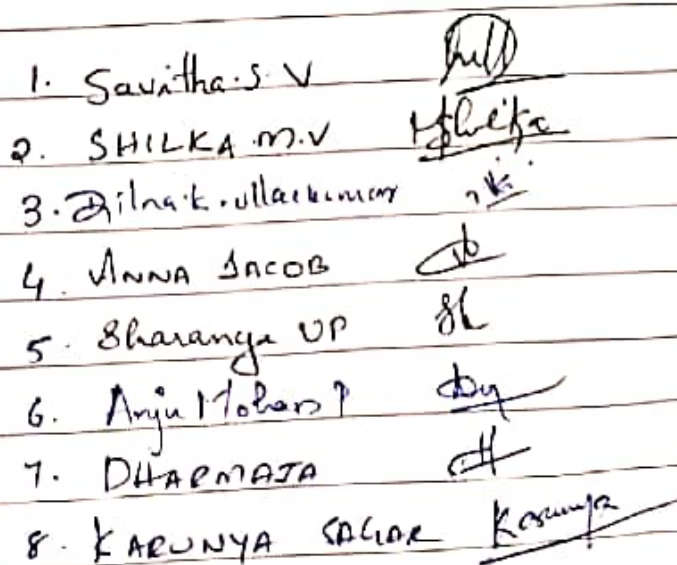 1. Savitha.S.V
2. SHILKA.M.V Shilka
3. Dilna.k.
4. ANNA JACOB
5. Sharanya UP
6. Anju Mohan P
7. DHARMAJA
8. KARUNYA SAGAR Karunya